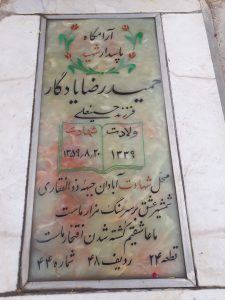 آرامگاه
پاسدار شهید
حمیدرضا یادگار
فرزند حسینعلی
ولادت شهادت
۱۳۳۹ ۱۳۵۹.۸.۲۰
محل شهادت آبادان جبهه ذوالفقاری
شمشیر عشق بر سر سنگ مزار ماست
ما عاشقیم کشته شدن افتخار ماست
قطعه ۲۴ ردیف ۴۸ شماره ۴۴